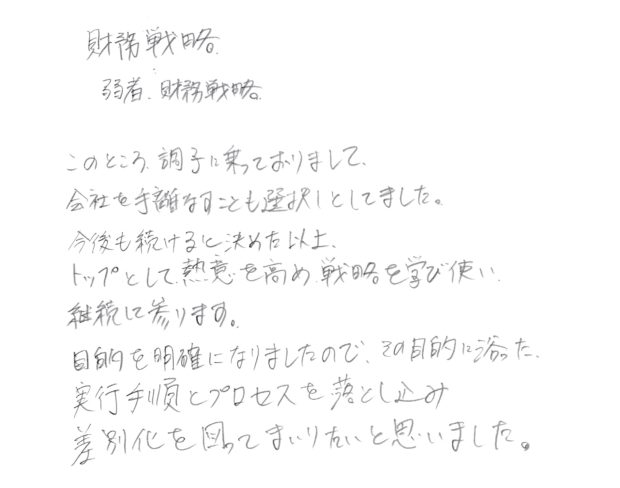 財務戦略
弱者、財務戦略
このところ、調子に乗っておりまして、
会社を手離なすことも選択しとしてました。
今後も続けると決めた以上、
トップとして熱意を高め、戦略を学び使い、
継続して参ります。
目的を明確になりましたので、その目的に沿った、
実行手順とプロセスを落とし込み
差別化を図ってまいりたいと思いました。